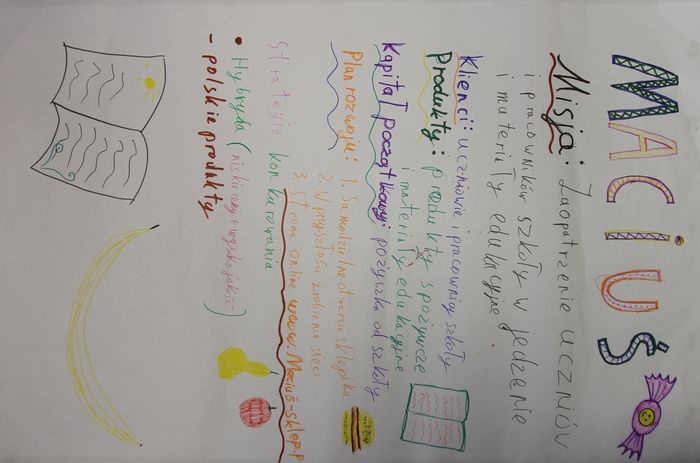 MACIUŚ
Misja: Zaopatrzenie uczniów
i pracowników szkoły w jedzenie
i materiały edukacyjne.
Klienci: uczniowie i pracownicy szkoły
Produkty: produkty spożywcze
i materiały edukacyjne
Kapitał początkowy: pożyczka od szkoły
Plan rozwoju: 1. Samodzielne otwarcie sklepiku
2. W przyszłości zrobienie sieci
3. Strona online www.Maciuś-sklep.p
Strategia konkurowania
• Hybryda (niskie ceny + wysoka jakość)
- polskie produkty